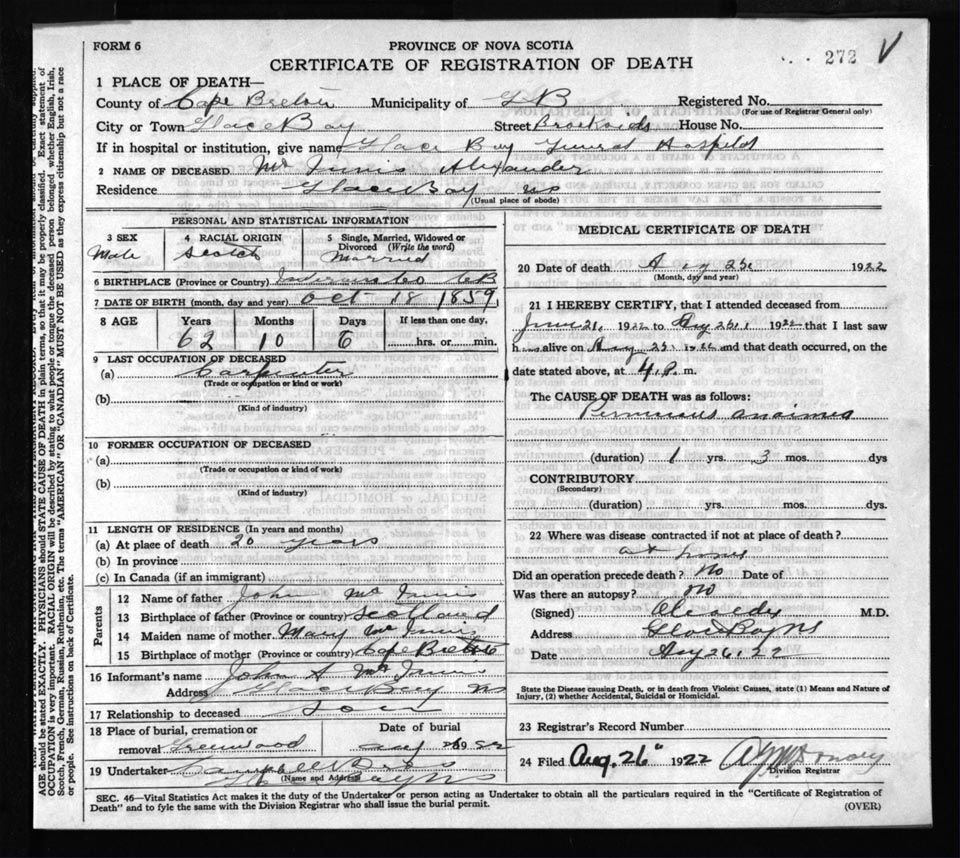 FORM 6
PROVINCE OF NOVA SCOTIA
272 V
CERTIFICATE OF REGISTRATION OF DEATH
1 PLACE OF DEATH—
County of Cape Breton Municipality of G B Registered No.
(For use of Registrar General only)
City or Town Glace Bay Street House No.
If in hospital or institution, give name Glace Bay General Hospital
2 NAME OF DECEASED Mc Innis Alexander
Residence Glace Bay NS
(Usual place of abode)
PERSONAL AND STATISTICAL INFORMATION
3 SEX 4 RACIAL ORIGIN 5 Single, Married, Widowed or Divorced (Write the word)
Male Scotch Married
6 BIRTHPLACE (Province or Country) CB
7 DATE OF BIRTH (month, day and year) Oct 18 1859
8 AGE Years Months Days If less than one day,
62 10 6 hrs. or min.
9 LAST OCCUPATION OF DECEASED
(a) Carpenter
(Trade or occupation or kind or work)
(b)
(Kind of industry)
10 FORMER OCCUPATION OF DECEASED
(a)
(Trade or occupation or kind of work)
(b)
(Kind of industry)
11 LENGTH OF RESIDENCE (In years and months)
(a) At place of death 20 years
(b) In province
(c) In Canada (if an immigrant)
Parents
12 Name of father John Mc Innis
13 Birthplace of father (Province or country) Scotland
14 Maiden name of mother Mary Mc Innis
15 Birthplace of mother (Province or country) Cape Breton
16 Informant's name John A Mc Innis
Address Glace Bay NS
17 Relationship to deceased Son
18 Place of burial, cremation or removal Greenwood
Date of burial Aug 26 1922
19 Undertaker Campbell Bros
(Name and Address) Glace Bay NS
MEDICAL CERTIFICATE OF DEATH
20 Date of death Aug 25 1922
(Month, day and year)
21 I HEREBY CERTIFY, that I attended deceased from
June 21, 1922 to Aug 25 1922 that I last saw
h alive on Aug 25 1922 and that death occurred, on the
date stated above, at 4 P. m.
The CAUSE OF DEATH was as follows:
Pernicious anaimea
(duration) 1 yrs. 3 mos. dys
CONTRIBUTORY
(Secondary)
(duration) yrs. mos. dys.
22 Where was disease contracted if not at place of death?
at home
Did an operation precede death? No Date of
Was there an autopsy? No
(Signed) M.D.
Address Glace Bay NS
Date Aug 26, 22
State the Disease causing Death, or in death from Violent Causes, state (1) Means and Nature of Injury, (2) whether Accidental, Suicidal or Homicidal.
23 Registrar's Record Number
24 Filed Aug. 26" 1922
Division Registrar
SEC. 46—Vital Statistics Act makes it the duty of the Undertaker or person acting as Undertaker to obtain all the particulars required in the "Certificate of Registration of
Death" and to fyle the same with the Division Registrar who shall issue the burial permit. (OVER)
AGE should be stated EXACTLY. PHYSICIANS should STATE CAUSE OF DEATH in plain terms, so that it may be properly classified. Exact statement of
OCCUPATION is very important. RACIAL ORIGIN will be described by stating to what people or tongue the deceased person belonged whether English, Irish,
Scotch, French, German, Russian, Ruthenian, etc. The terms "AMERICAN" OR "CANADIAN" MUST NOT BE USED as they express citizenship but not a race
or people. See instructions on back of Certificate.